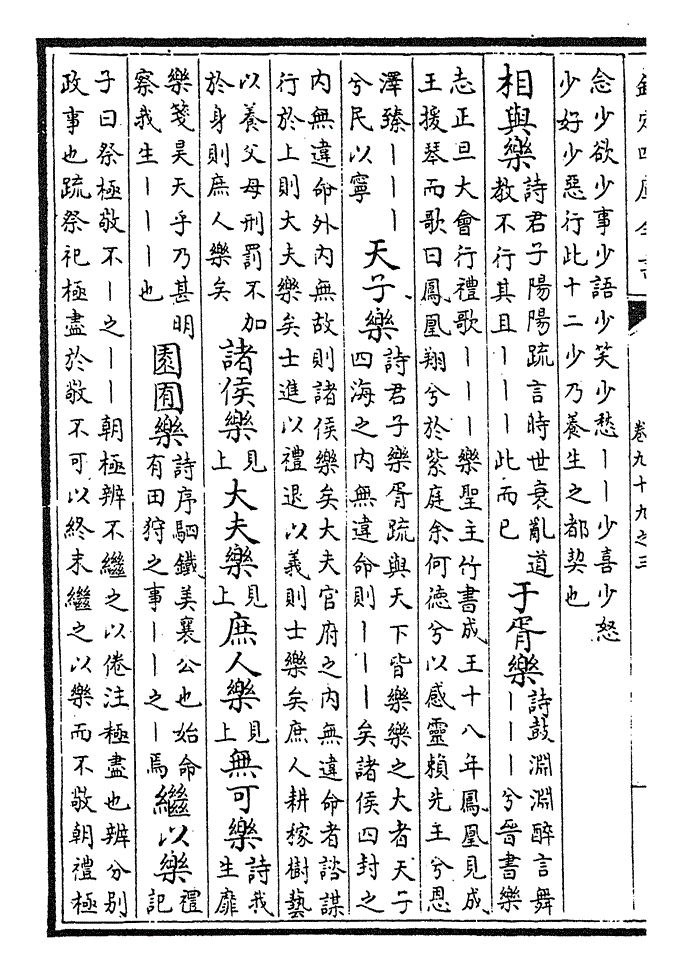 卷九十九之三
念少欲少事少語少笑少愁丨丨少喜少怒
少好少惡行此十二少乃養生之都契也
相與樂
詩君子陽陽疏言時世衰亂道
教不行其且丨丨丨此而已
于胥樂
詩鼓淵淵醉言舞
丨丨丨兮晉書樂
志正旦大會行禮歌丨丨丨樂聖主竹書成王十八年鳳凰見成
王援琴而歌曰鳳凰翔兮於紫庭余何徳兮以感靈賴先主兮恩
澤臻丨丨丨
兮民以寧
天子樂
詩君子樂胥疏與天下皆樂樂之大者天子
四海之内無違命則丨丨丨矣諸侯四封之
内無違命外内無故則諸侯樂矣大夫官府之内無違命者諮謀
行於上則大夫樂矣士進以禮退以義則士樂矣庶人耕稼樹藝
以養父母刑罰不加
於身則庶人樂矣
諸侯樂
見
上
大夫樂
見
上
庶人樂
見
上
無可樂
詩我
生靡
樂箋昊天乎乃甚明
察我生丨丨丨也
園囿樂
詩序駟鐵美襄公也始命
有田狩之事丨丨之丨焉
繼以樂
禮
記
子曰祭極敬不丨之丨丨朝極辨不繼之以倦注極盡也辨分别
政事也疏祭祀極盡於敬不可以終末繼之以樂而不敬朝禮極